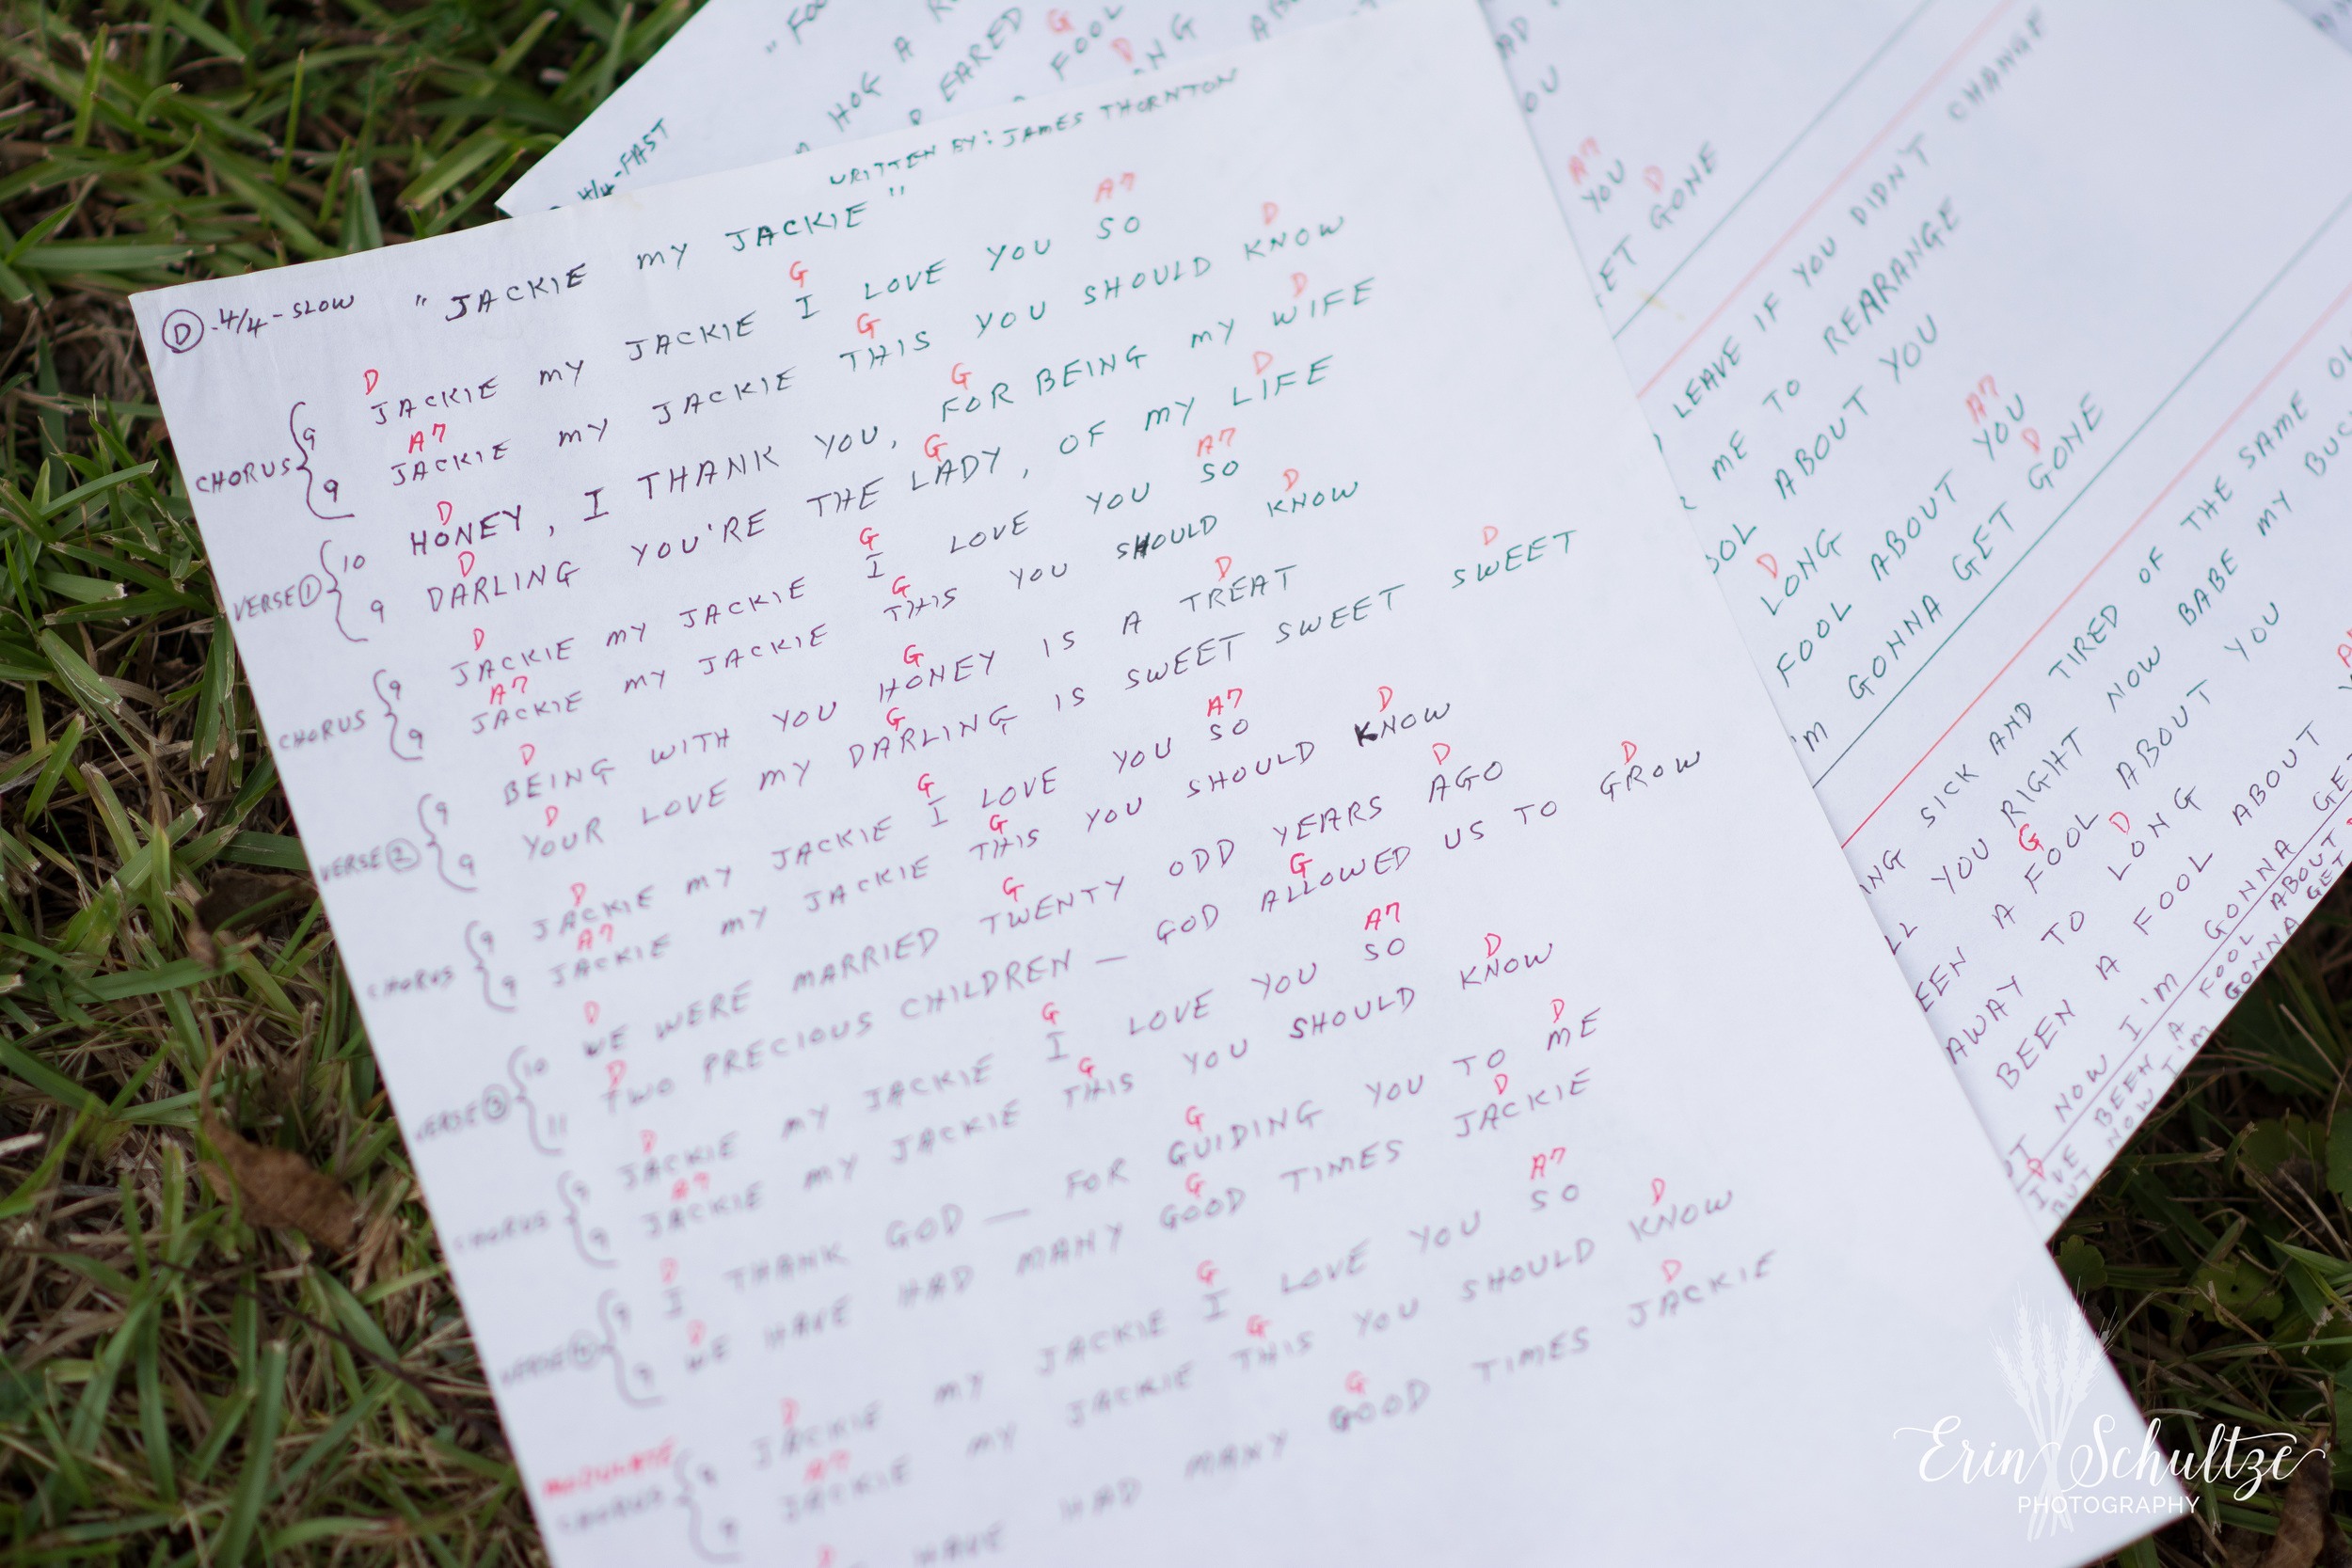 WRITTEN BY: JAMES THORNTON
D - 4/4 - SLOW "JACKIE MY JACKIE"
D G A7
CHORUS 9 JACKIE MY JACKIE I LOVE YOU SO
A7 G D
9 JACKIE MY JACKIE THIS YOU SHOULD KNOW
D G D
VERSE 1 10 HONEY, I THANK YOU, FOR BEING MY WIFE
D G D
9 DARLING YOU'RE THE LADY, OF MY LIFE
D G A7
CHORUS 9 JACKIE MY JACKIE I LOVE YOU SO
A7 G D
9 JACKIE MY JACKIE THIS YOU SHOULD KNOW
D G D
VERSE 2 9 BEING WITH YOU HONEY IS A TREAT
D G D
9 YOUR LOVE MY DARLING IS SWEET SWEET SWEET
D G A7
CHORUS 9 JACKIE MY JACKIE I LOVE YOU SO
A7 G D
9 JACKIE MY JACKIE THIS YOU SHOULD KNOW
D G D
VERSE 3 10 WE WERE MARRIED TWENTY ODD YEARS AGO
D G D
11 TWO PRECIOUS CHILDREN — GOD ALLOWED US TO GROW
D G A7
CHORUS 9 JACKIE MY JACKIE I LOVE YOU SO
A7 G D
9 JACKIE MY JACKIE THIS YOU SHOULD KNOW
D G D
VERSE 4 9 I THANK GOD — FOR GUIDING YOU TO ME
D G D
9 WE HAVE HAD MANY GOOD TIMES JACKIE
D G A7
MODULATE CHORUS 9 JACKIE MY JACKIE I LOVE YOU SO
A7 G D
9 JACKIE MY JACKIE THIS YOU SHOULD KNOW
D G D
HAVE HAD MANY GOOD TIMES JACKIE
4/4-FAST
HOG A
EARED
G D
FOOL
A7
YOU
D
GET GONE
LEAVE IF YOU DIDN'T CHANGE
ME TO REARANGE
ABOUT YOU
D
LONG
A7
FOOL ABOUT YOU
D
I'M GONNA GET GONE
SICK AND TIRED OF THE SAME
YOU RIGHT NOW BABE MY
G
BEEN A FOOL ABOUT YOU
D
AWAY TO LONG
BEEN A FOOL ABOUT
NOW I'M GONNA GET
D
I'VE BEEN A FOOL ABOUT
BUT NOW I'M GONNA GET
Erin Schultze
PHOTOGRAPHY